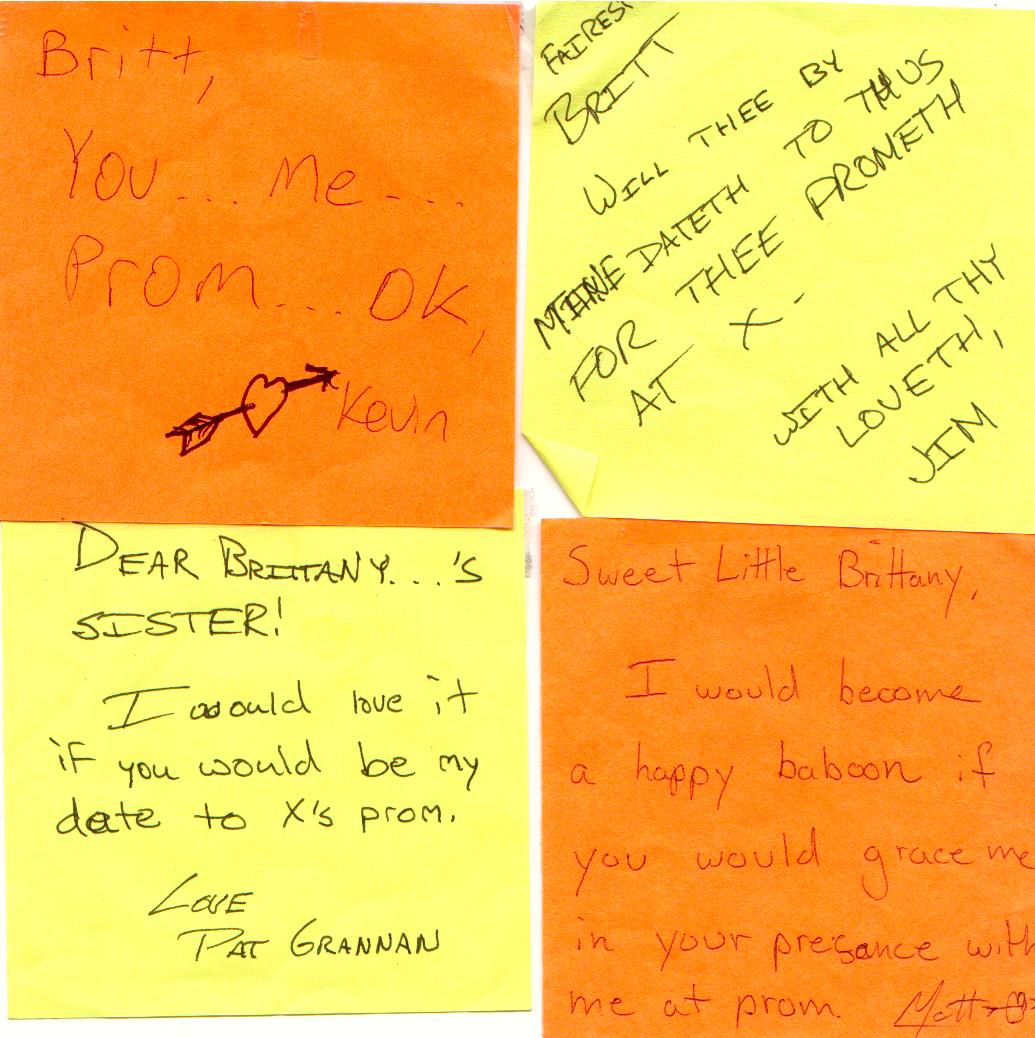 Britt,
You... Me...
Prom... OK,
Kevin
FAIREST
BRITT
WILL THEE BY
MINE DATETH TO THUS
FOR THEE PROMETH
AT X-
WITH ALL THY
LOVETH,
JIM
DEAR BRITTANY...'S
SISTER!
I would love it
if you would be my
date to X's prom.
LOVE
PAT GRANNAN
Sweet Little Brittany,
I would become
a happy baboon if
you would grace me
in your presance with
me at prom. Matt